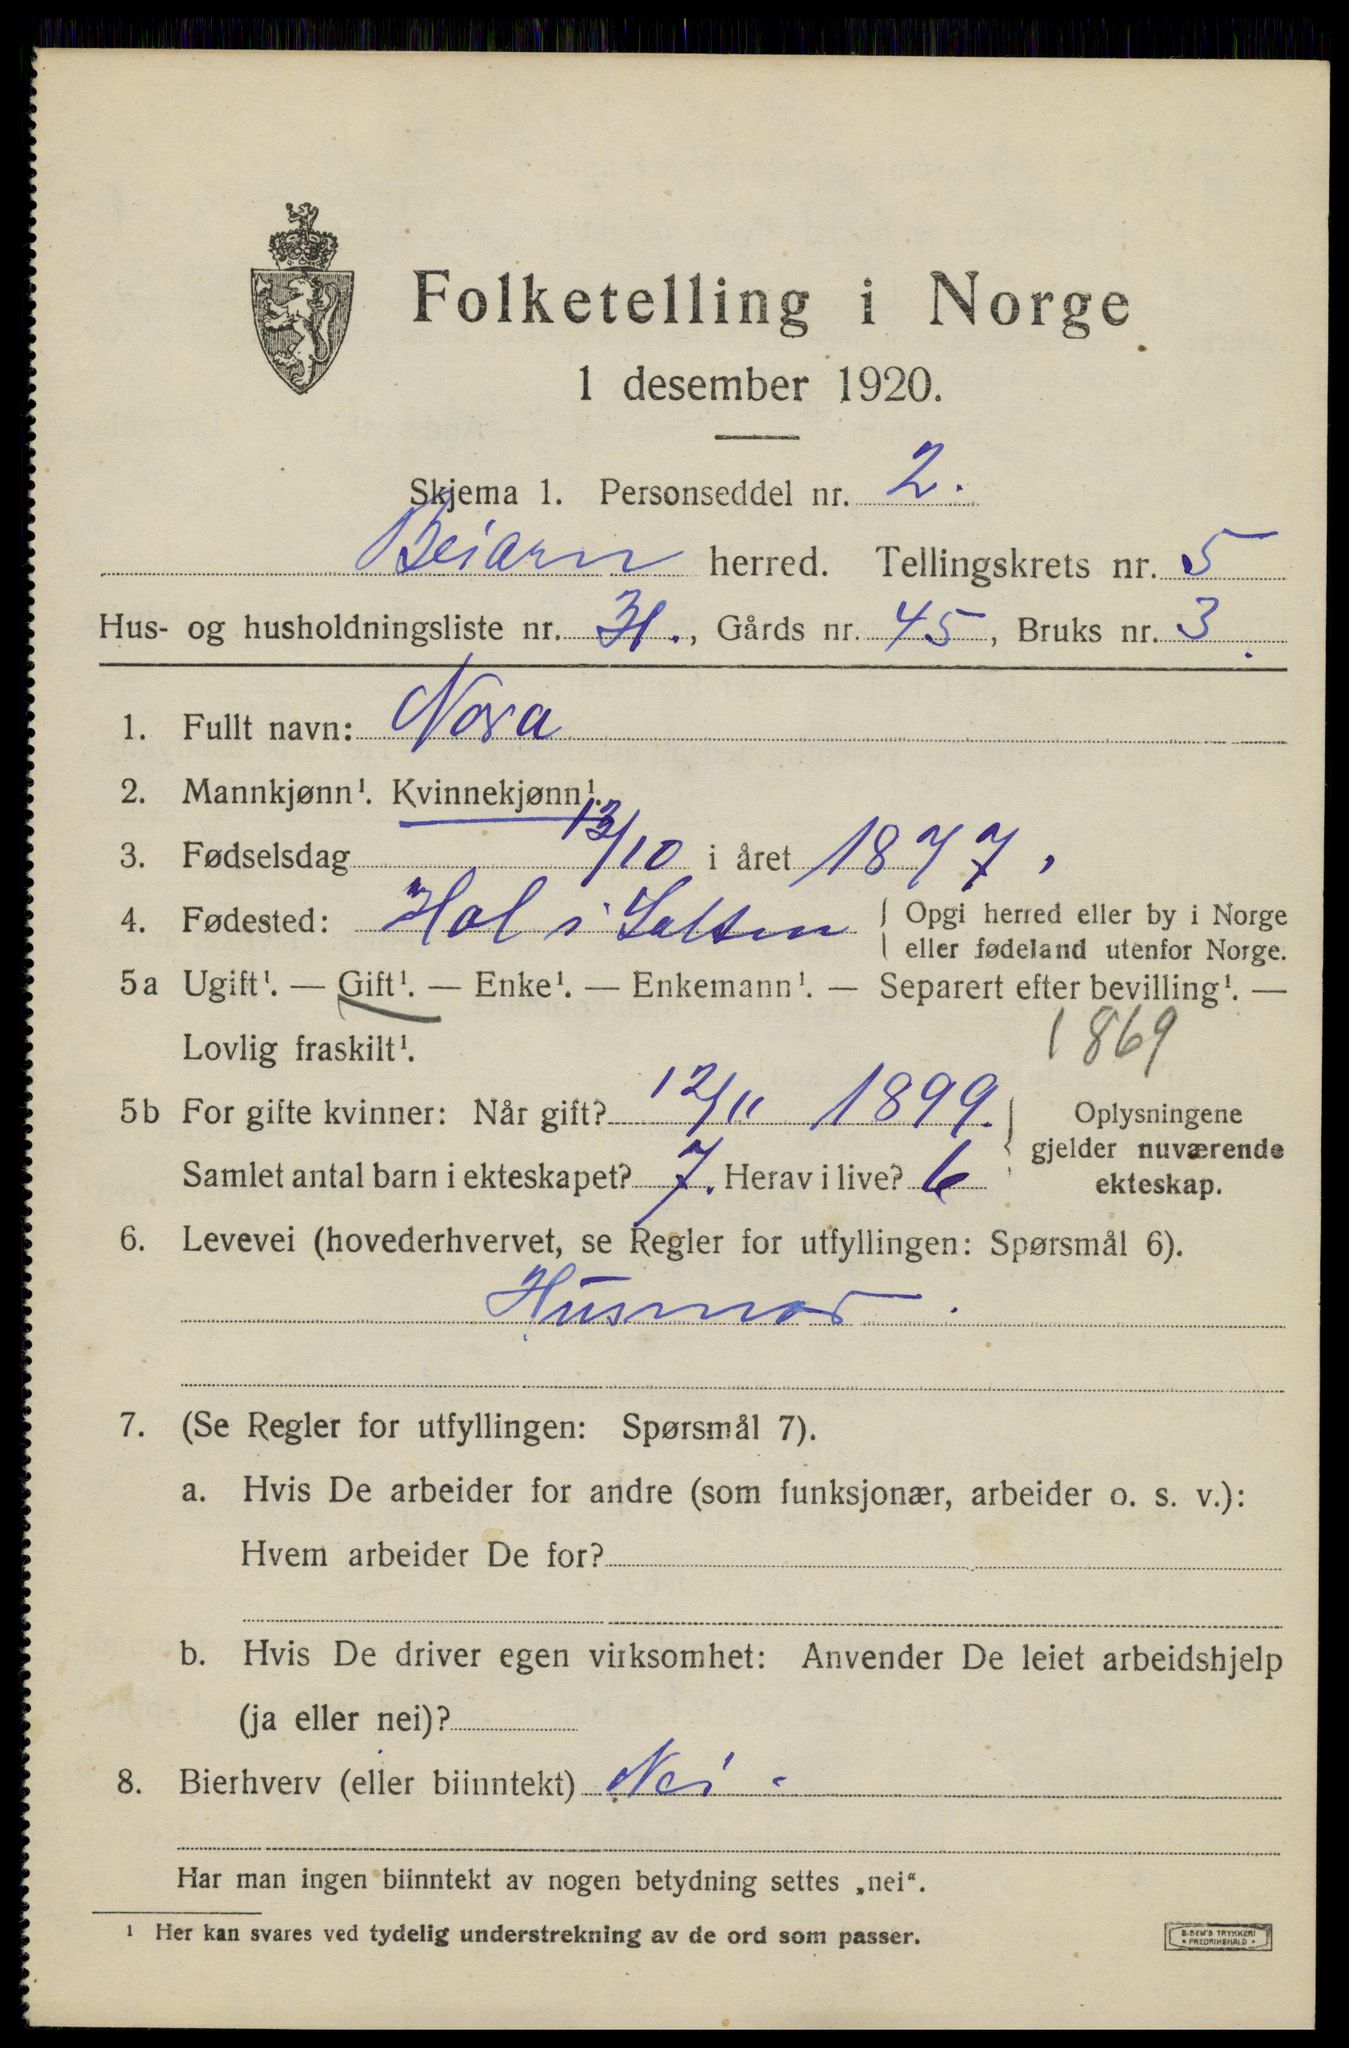 Folketelling i Norge
1 desember 1920.
Skjema 1. Personseddel nr. 2.
Beiarn herred. Tellingskrets nr. 5
Hus- og husholdningsliste nr. 31., Gårds nr. 45, Bruks nr. 3.
1. Fullt navn: Nora
2. Mannkjønn¹. Kvinnekjønn¹.
3. Fødselsdag 13/10 i året 1877.
4. Fødested: Hol i Salten { Opgi herred eller by i Norge
eller fødeland utenfor Norge.
5a Ugift¹. — Gift¹. — Enke¹. — Enkemann¹. — Separert efter bevilling¹. —
Lovlig fraskilt¹. 1869
5b For gifte kvinner: Når gift? 12/11 1899. { Oplysningene
gjelder nuværende
Samlet antal barn i ekteskapet? 7. Herav i live? 6 ekteskap.
6. Levevei (hovederhvervet, se Regler for utfyllingen: Spørsmål 6).
Husmor.
7. (Se Regler for utfyllingen: Spørsmål 7).
a. Hvis De arbeider for andre (som funksjonær, arbeider o. s. v.):
Hvem arbeider De for?
b. Hvis De driver egen virksomhet: Anvender De leiet arbeidshjelp
(ja eller nei)?
8. Bierhverv (eller biinntekt) Nei.
Har man ingen biinntekt av nogen betydning settes „nei“.
¹ Her kan svares ved tydelig understrekning av de ord som passer.
E. SEM'S TRYKKERI
• FREDRIKSHALD •